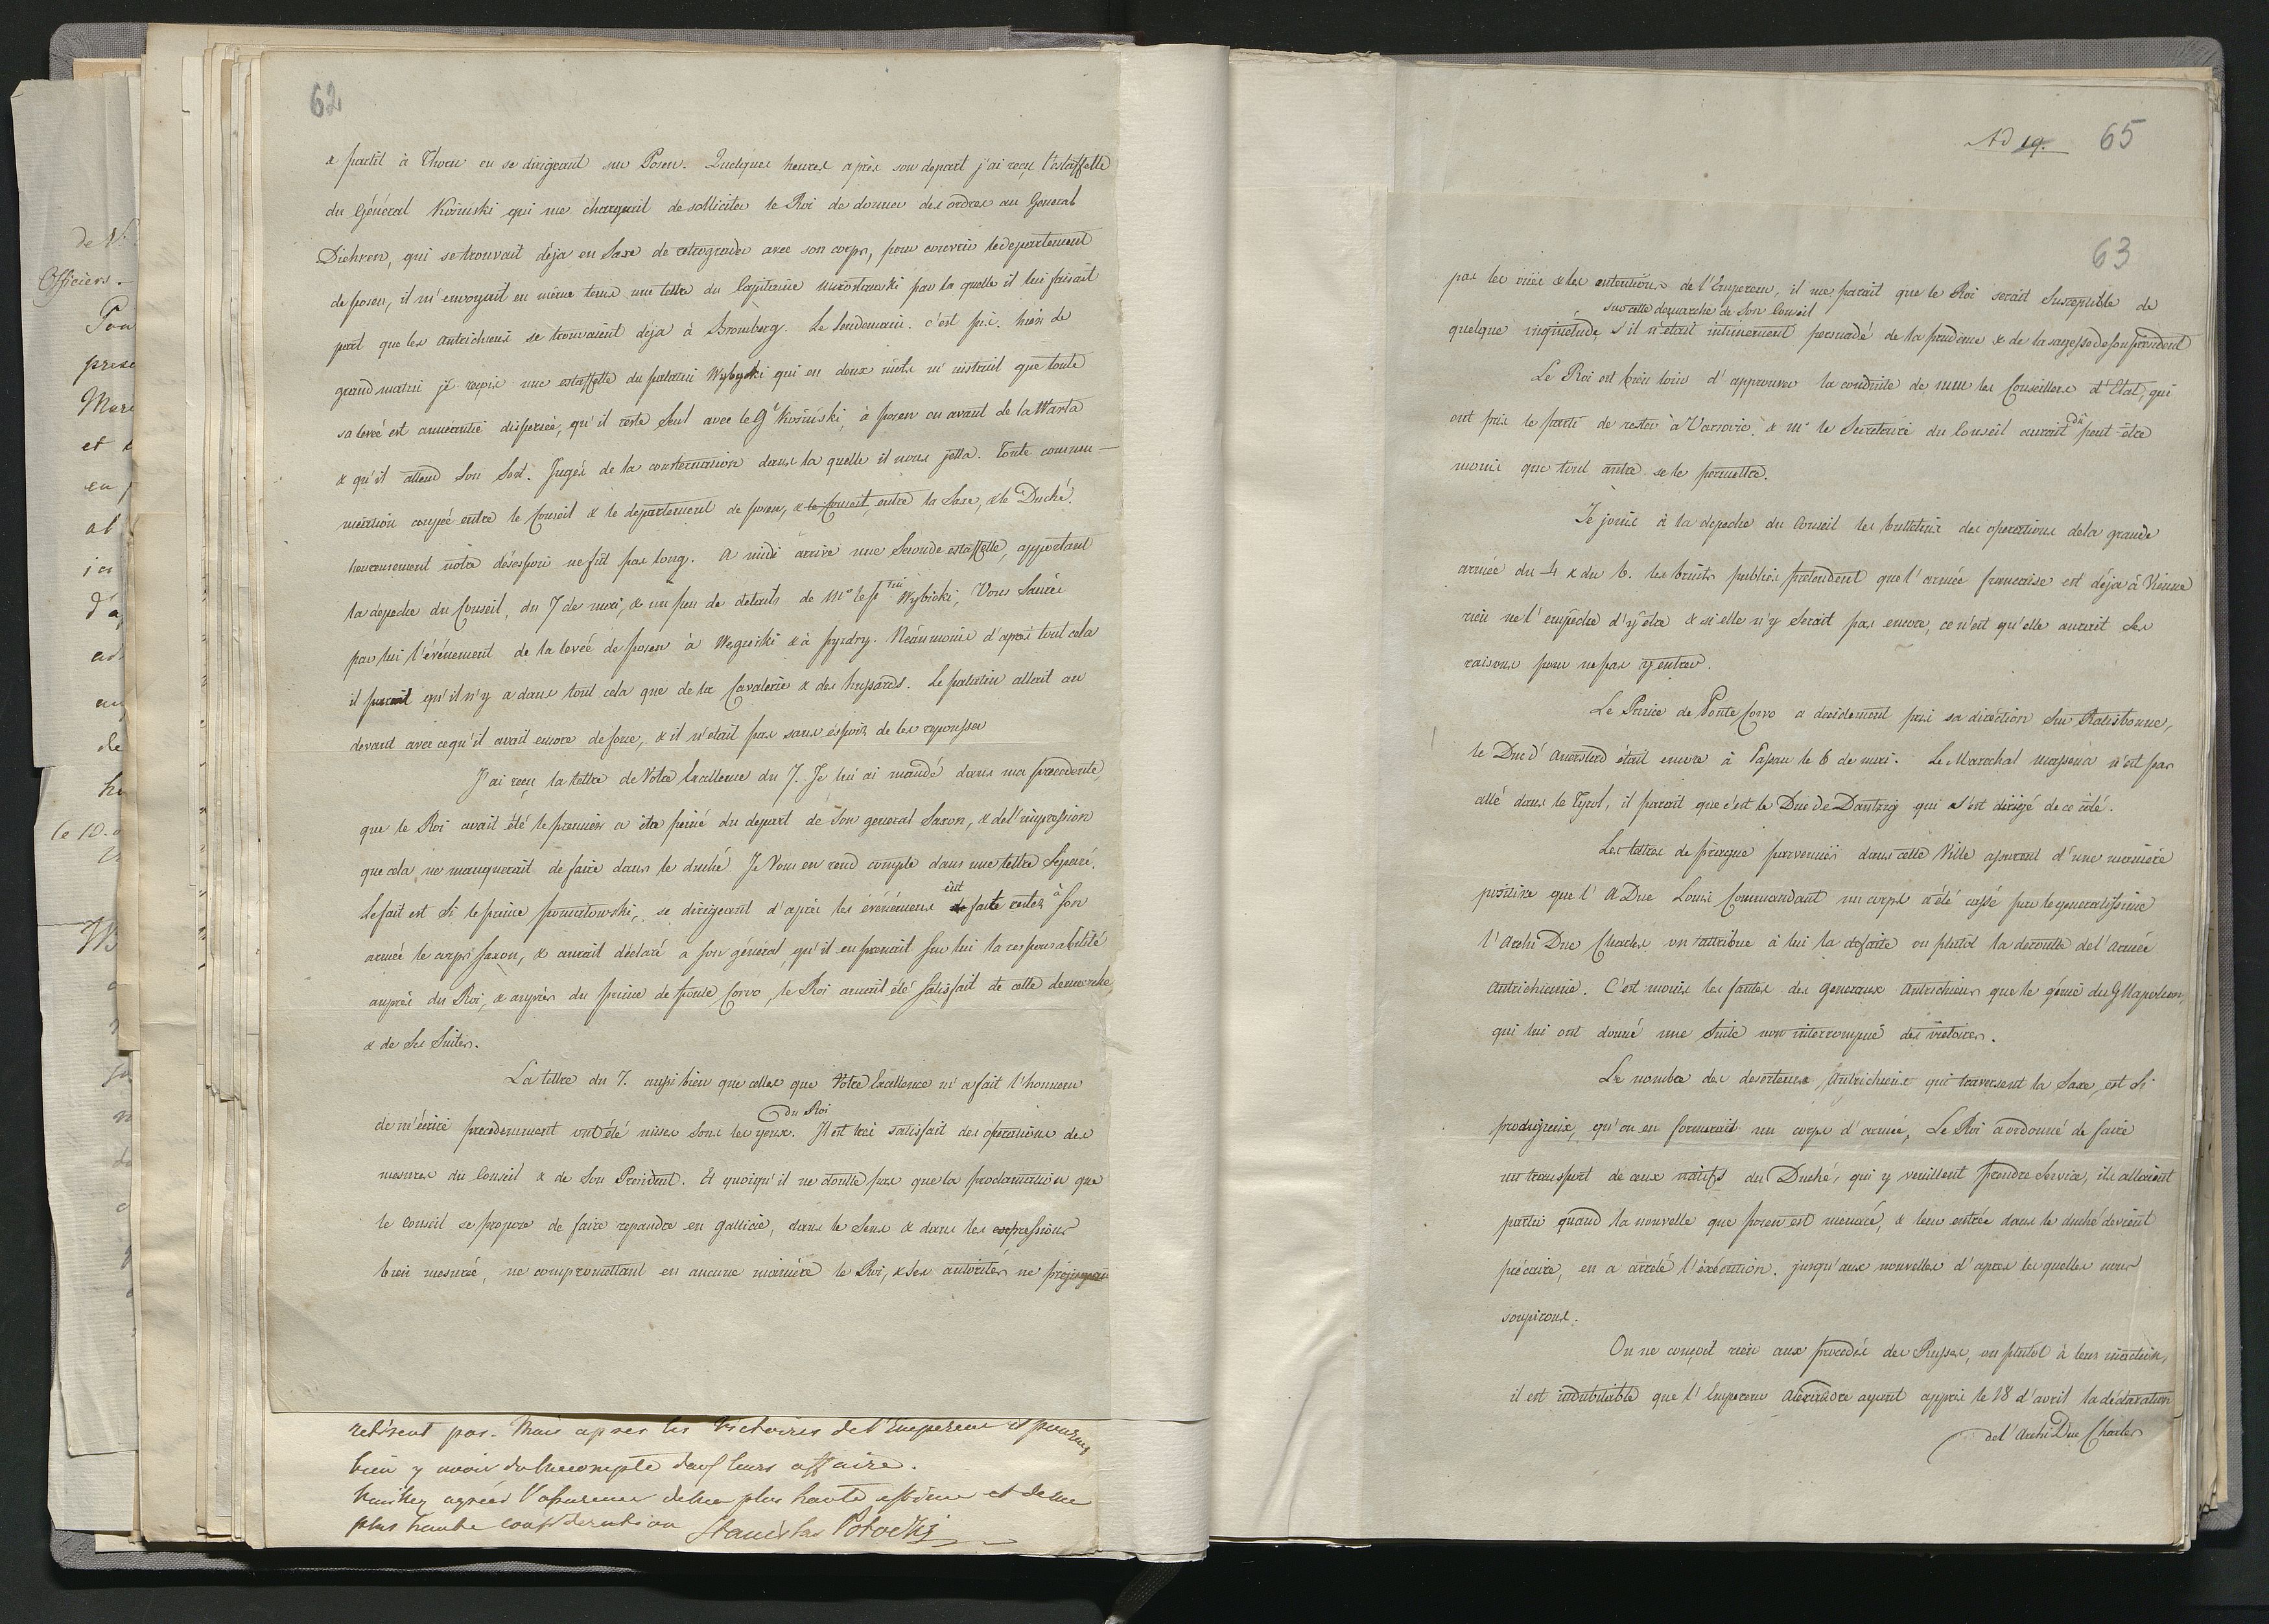 62
& partit à Thorn en se dirigeant sur Posen. Quelques heures après son depart j'ai reçu l'estaffette
du Général Kosinski qui me chargeait de solliciter le Roi de donner des ordres au General
Diehren, qui se trouvait déja en Saxe de retrograder avec son corps, pour couvrir le departement
de posen, il m'envoyait en même tems une lettre du Capitaine par la quelle il lui faisait
part que les Autrichiens se trouvaient deja à Bromberg. Le lendemain. c'est hier de
grand matin je reçois une estaffette du palatin Wybycki qui en deux mots m'instruit que toute
sa levée est aneantie dispersée, qu'il reste seul avec le Gl Kosinski, à posen en avant de la Warta
& qu'il attend son Sort. Jugés de la consternation dans la quelle il nous jetta. Toute commu-
nication coupée entre le Conseil & le departement de posen, & le Conseil, entre la Saxe, & le Duché.
heureusement nôtre désespoir ne fût pas long. A midi arrive une Seconde estaffette, apportant
la depeche du Conseil, du 7 de mai, & un peu de details de Mr le Wybicki, Vous Saurés
par lui l'événement de la levée de posen à & à pyzdry. Néanmoins d'après tout cela
il parait qu'il n'y a dans tout cela que de la Cavalerie & des hussards. Le palatin allait au
devant avec ce qu'il avait encore de force, & il n'etait pas sans éspoir de les repousser
J'ai reçu la lettre de Votre Excellence du 7. Je lui ai mandé dans ma precedente,
que le Roi avait été le premier a etre peiné du depart de Son general Saxon, & de l'impression
que cela ne manquerait de faire dans le duché Je Vous en rend compte dans une lettre Separé.
Le fait est Si le prince poniatowski, se dirigeant d'après les événemens eut faite rester à Son
armée le corps Saxon, & aurait déclaré a son général, qu'il en prenait Sur lui la responsabilité
auprès du Roi, & auprès du prince de ponte Corvo, le Roi aurait été Satisfait de cette demarche
& de Ses Suites.
La lettre du 7. aussi bien que celles que Votre Excellence m'a fait l'honneur
de m'écrire precedemment ont été mises Sous les yeux du Roi. Il est trés satisfait des operations des
mesures du Conseil & de Son President. Et quoiqu'il ne doutte pas que la proclamation que
le Conseil se propose de faire repandre en Gallicie, dans le Sens & dans les expressions
bien mesurée, ne compromettant en aucune manière le Roi, & Ses autorités ne prejugeant
retirent pas. Mais apres les Victoires de l'Empereur
bien y avoir du mecompte dans leurs affaire.
Veuillez agréer l'assurance de ma plus haute estime et de ma
plus haute consideration Stanislas Potocki
Ad 19. 65
63
pas les vües & les intentions de l'Empereur, il me parait que le Roi serait Susceptible de
sur cette demarche de Son Conseil
quelque inquiétude, s'il n'était intimement persuadé de la prudence & de la sagesse de son président
Le Roi est bien loin d'approuver la conduite de mm les Conseillers d'Etat, qui
ont pris le parti de rester à Varsovie, & mr le Secretaire du Conseil aurait dû peut être
moins que tout autre se le permettre.
Je joins à la depeche du Conseil les bulletins des operations de la grande
armée du 4 & du 6. les bruits publics pretendent que l'armée francaise est déja à Vienne
rien ne l'empêche d'y être & si elle n'y Serait pas encore, ce n'est qu'elle aurait Ses
raisons pour ne pas y entrer.
Le Prince de Ponte Corvo a decidement pris sa diréction Sur Ratisbonne,
le Duc d'Auerstad était encore à Passau le 6 de mai. Le Marechal massena n'est pas
allé dans le Tyrol, il parait que c'est le Duc de Dantzig qui s'est dirigé de ce coté.
Les lettres de prague parvenues dans cette Ville assurent d'une manière
positive que l'A Duc Louis Commandant un corps a été cassé par le generalissime
l'Archi Duc Charles on attribue à lui la defaite ou plutôt la deroutte de l'Armée
Autrichienne. C'est moins les fautes des generaux Autrichiens que le génie du G Napoleon,
qui lui ont donné une Suite non interrompue des victoires.
Le nombre des deserteurs Autrichiens qui traversent la Saxe, est Si
prodigieux, qu'on en formerait un corps d'armée, Le Roi a ordonné de faire
un transport de ceux natifs du Duché, qui y veuillent prendre Service, ils allaient
partir quand la nouvelle que posen est menacé, & leur entrée dans le duché devient
précaire, en a arrêté l'éxécution, jusqu'aux nouvelles d'apres les quelles nous
soupirons.
On ne conçoit rien aux procedés des Russes, ou plutôt à leur inaction,
il est indubitable que l'Empereur Alexandre ayant appris le 18 d'avril la déclaration
del'Archi Duc Charles